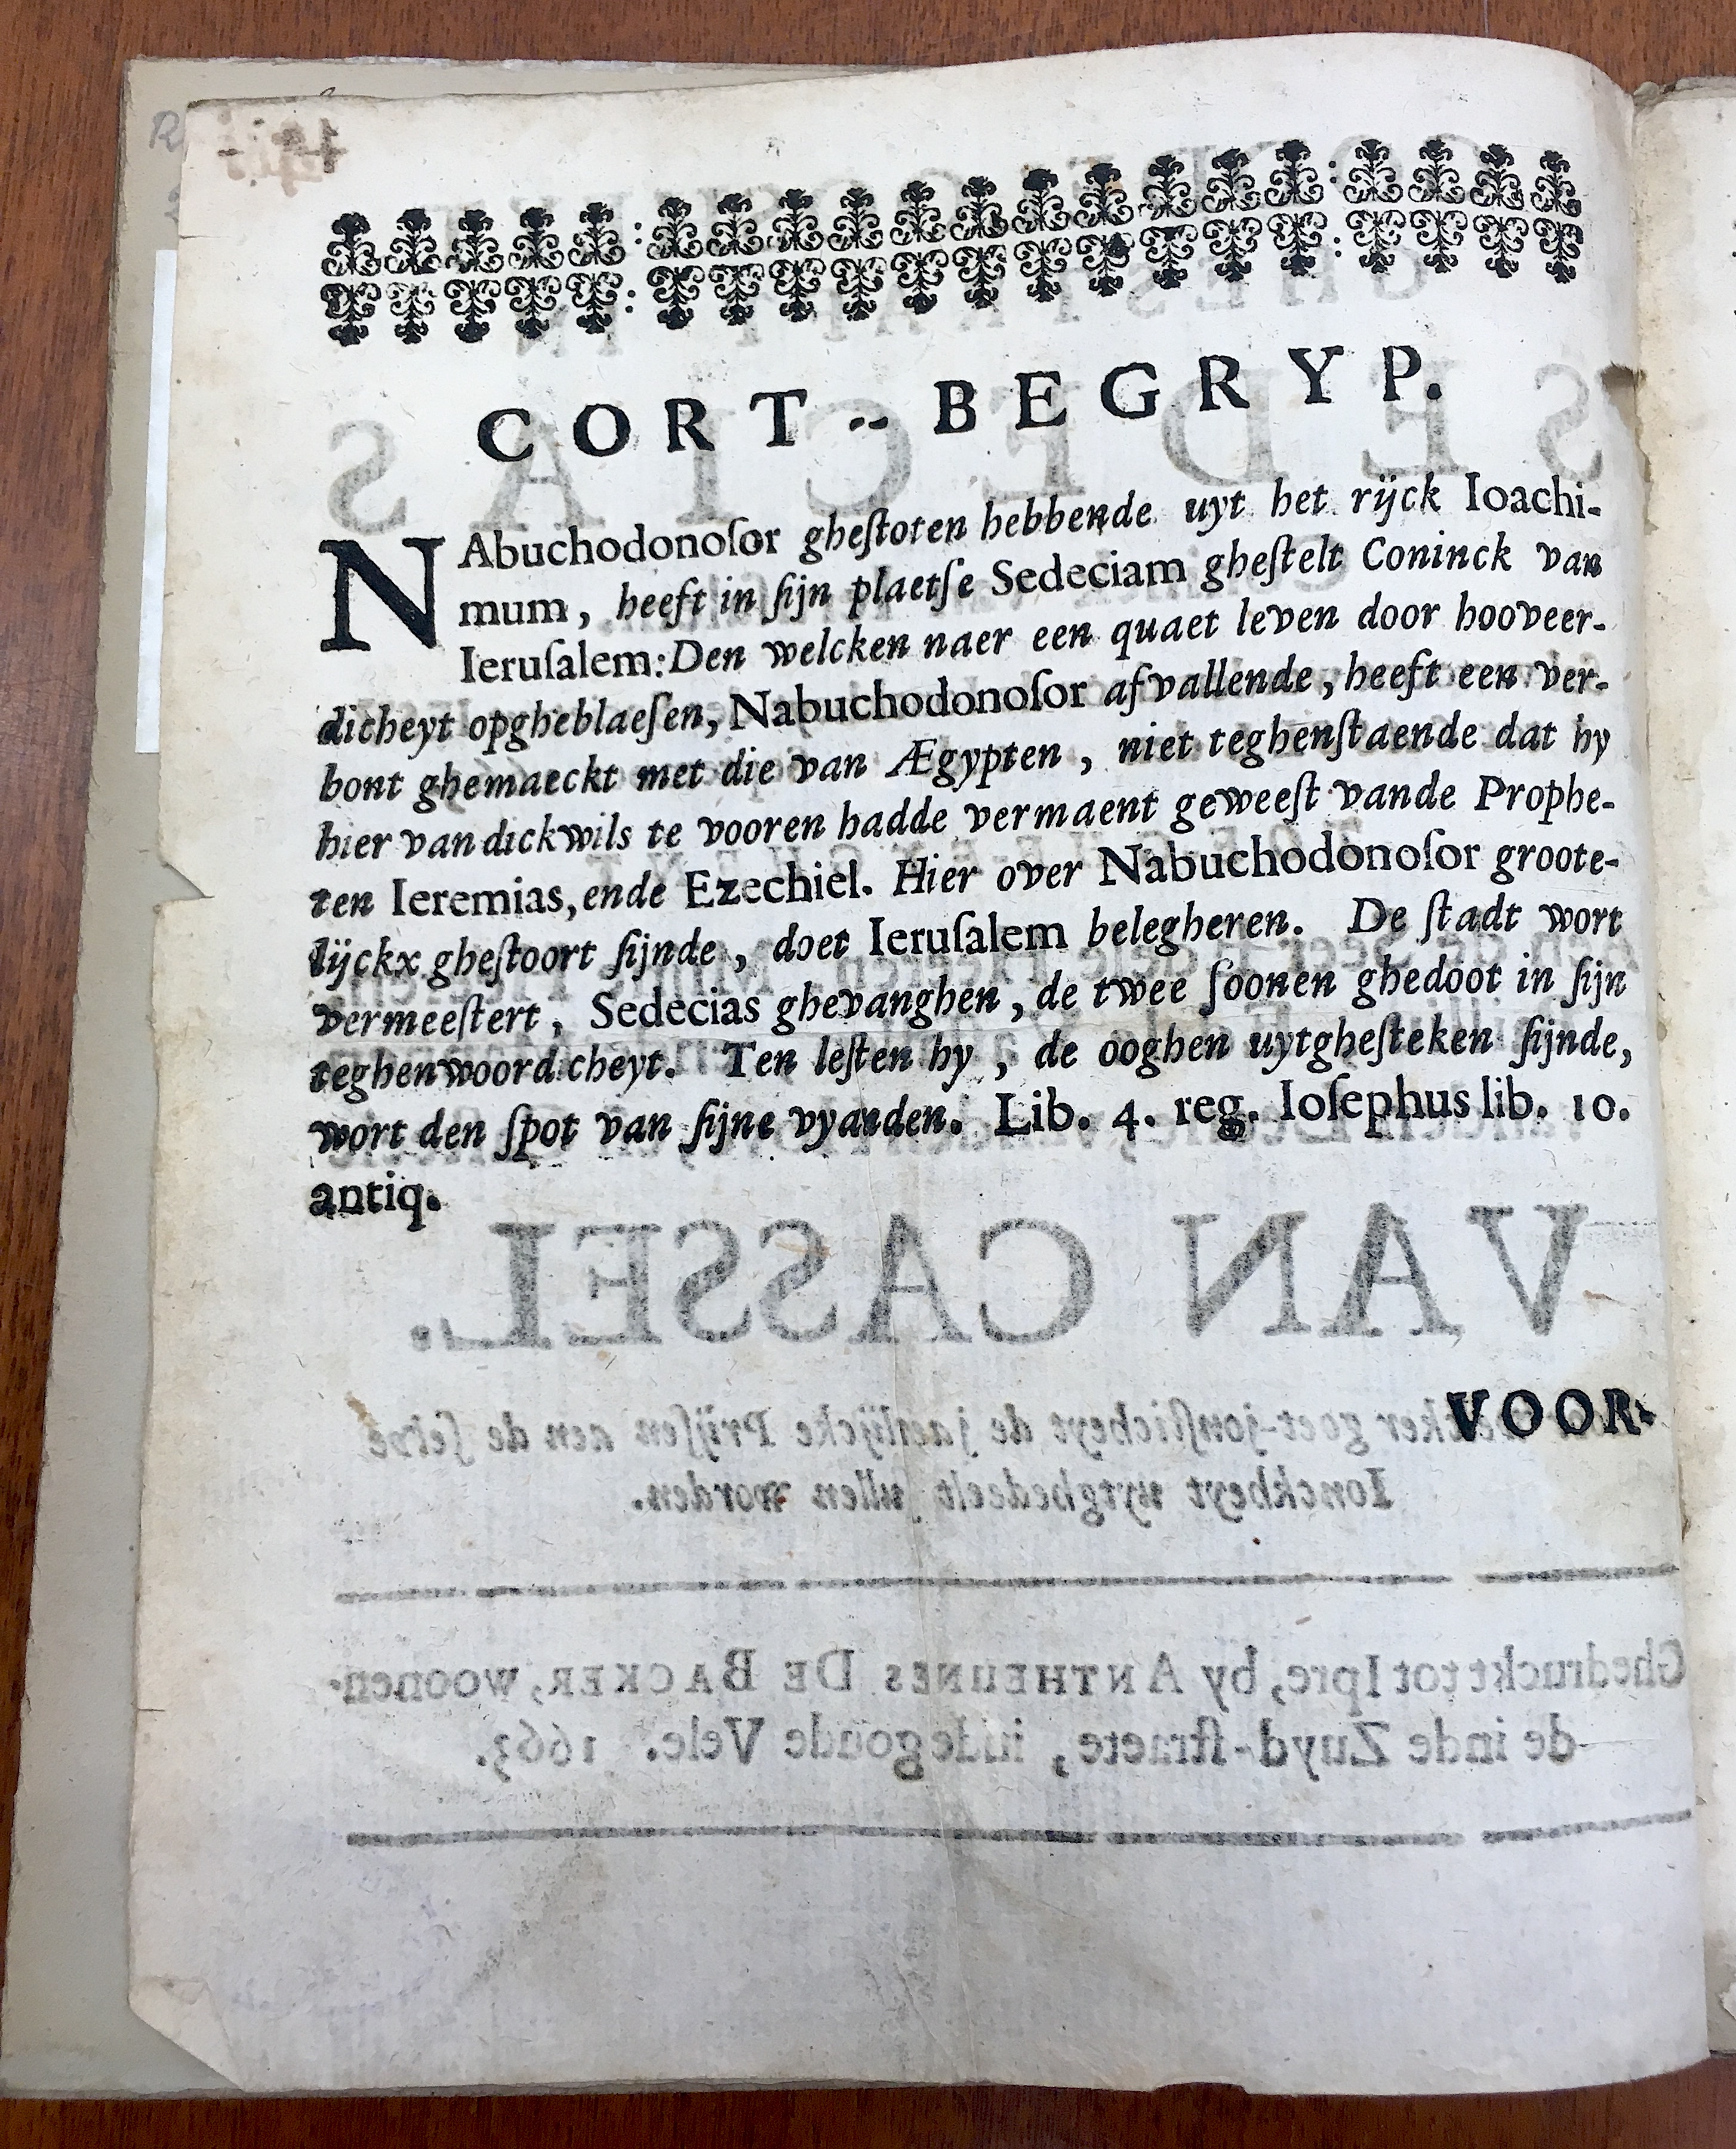 CORT-BEGRYP.
NAbuchodonoſor gheſtoten hebbende uyt het rijck Ioachi-
mum, heeft in ſijn plaetſe Sedeciam gheſtelt Coninck van
Ieruſalem: Den welcken naer een quaet leven door hooveer-
dicheyt opgheblaeſen, Nabuchodonoſor afvallende, heeft een ver-
bont ghemaeckt met die van Ægypten, niet teghenſtaende dat hy
hier van dickwils te vooren hadde vermaent geweeſt vande Prophe-
ten Ieremias, ende Ezechiel. Hier over Nabuchodonoſor groote-
lijckx gheſtoort ſijnde, doet Ieruſalem belegheren. De ſtadt wort
vermeeſtert, Sedecias ghevanghen, de twee ſoonen ghedoot in ſijn
teghenwoordicheyt. Ten leſten hy, de ooghen uytgheſteken ſijnde,
wort den ſpot van ſijne vyanden. Lib. 4. reg. Ioſephus lib. 10.
antiq.
VAN CASSEL.
VOOR-
Ionckheyt uytghedeelt ſullen worden.
Ghedruckt tot Ipre, by ANTHEUNES DE BACKER, woonen-
de inde Zuyd-ſtraete, inde goude Vele. 1663.